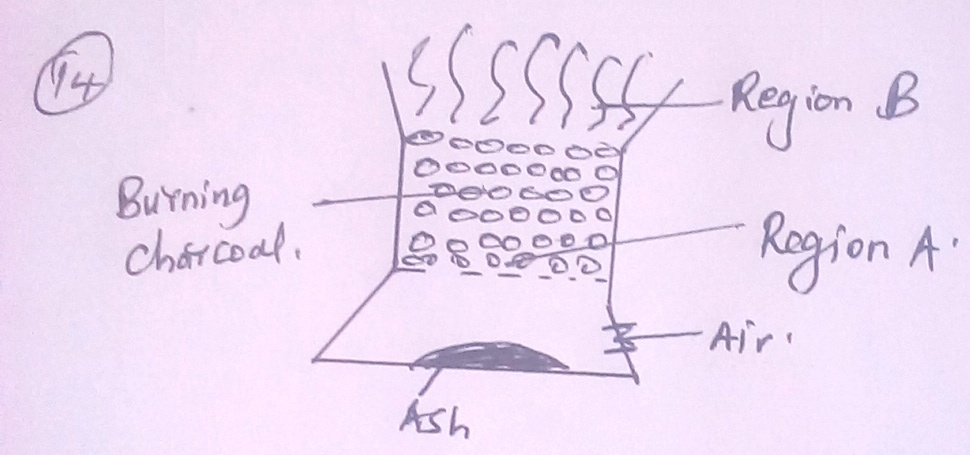 14
Region B
Burning
charcoal.
Region A.
Air.
Ash